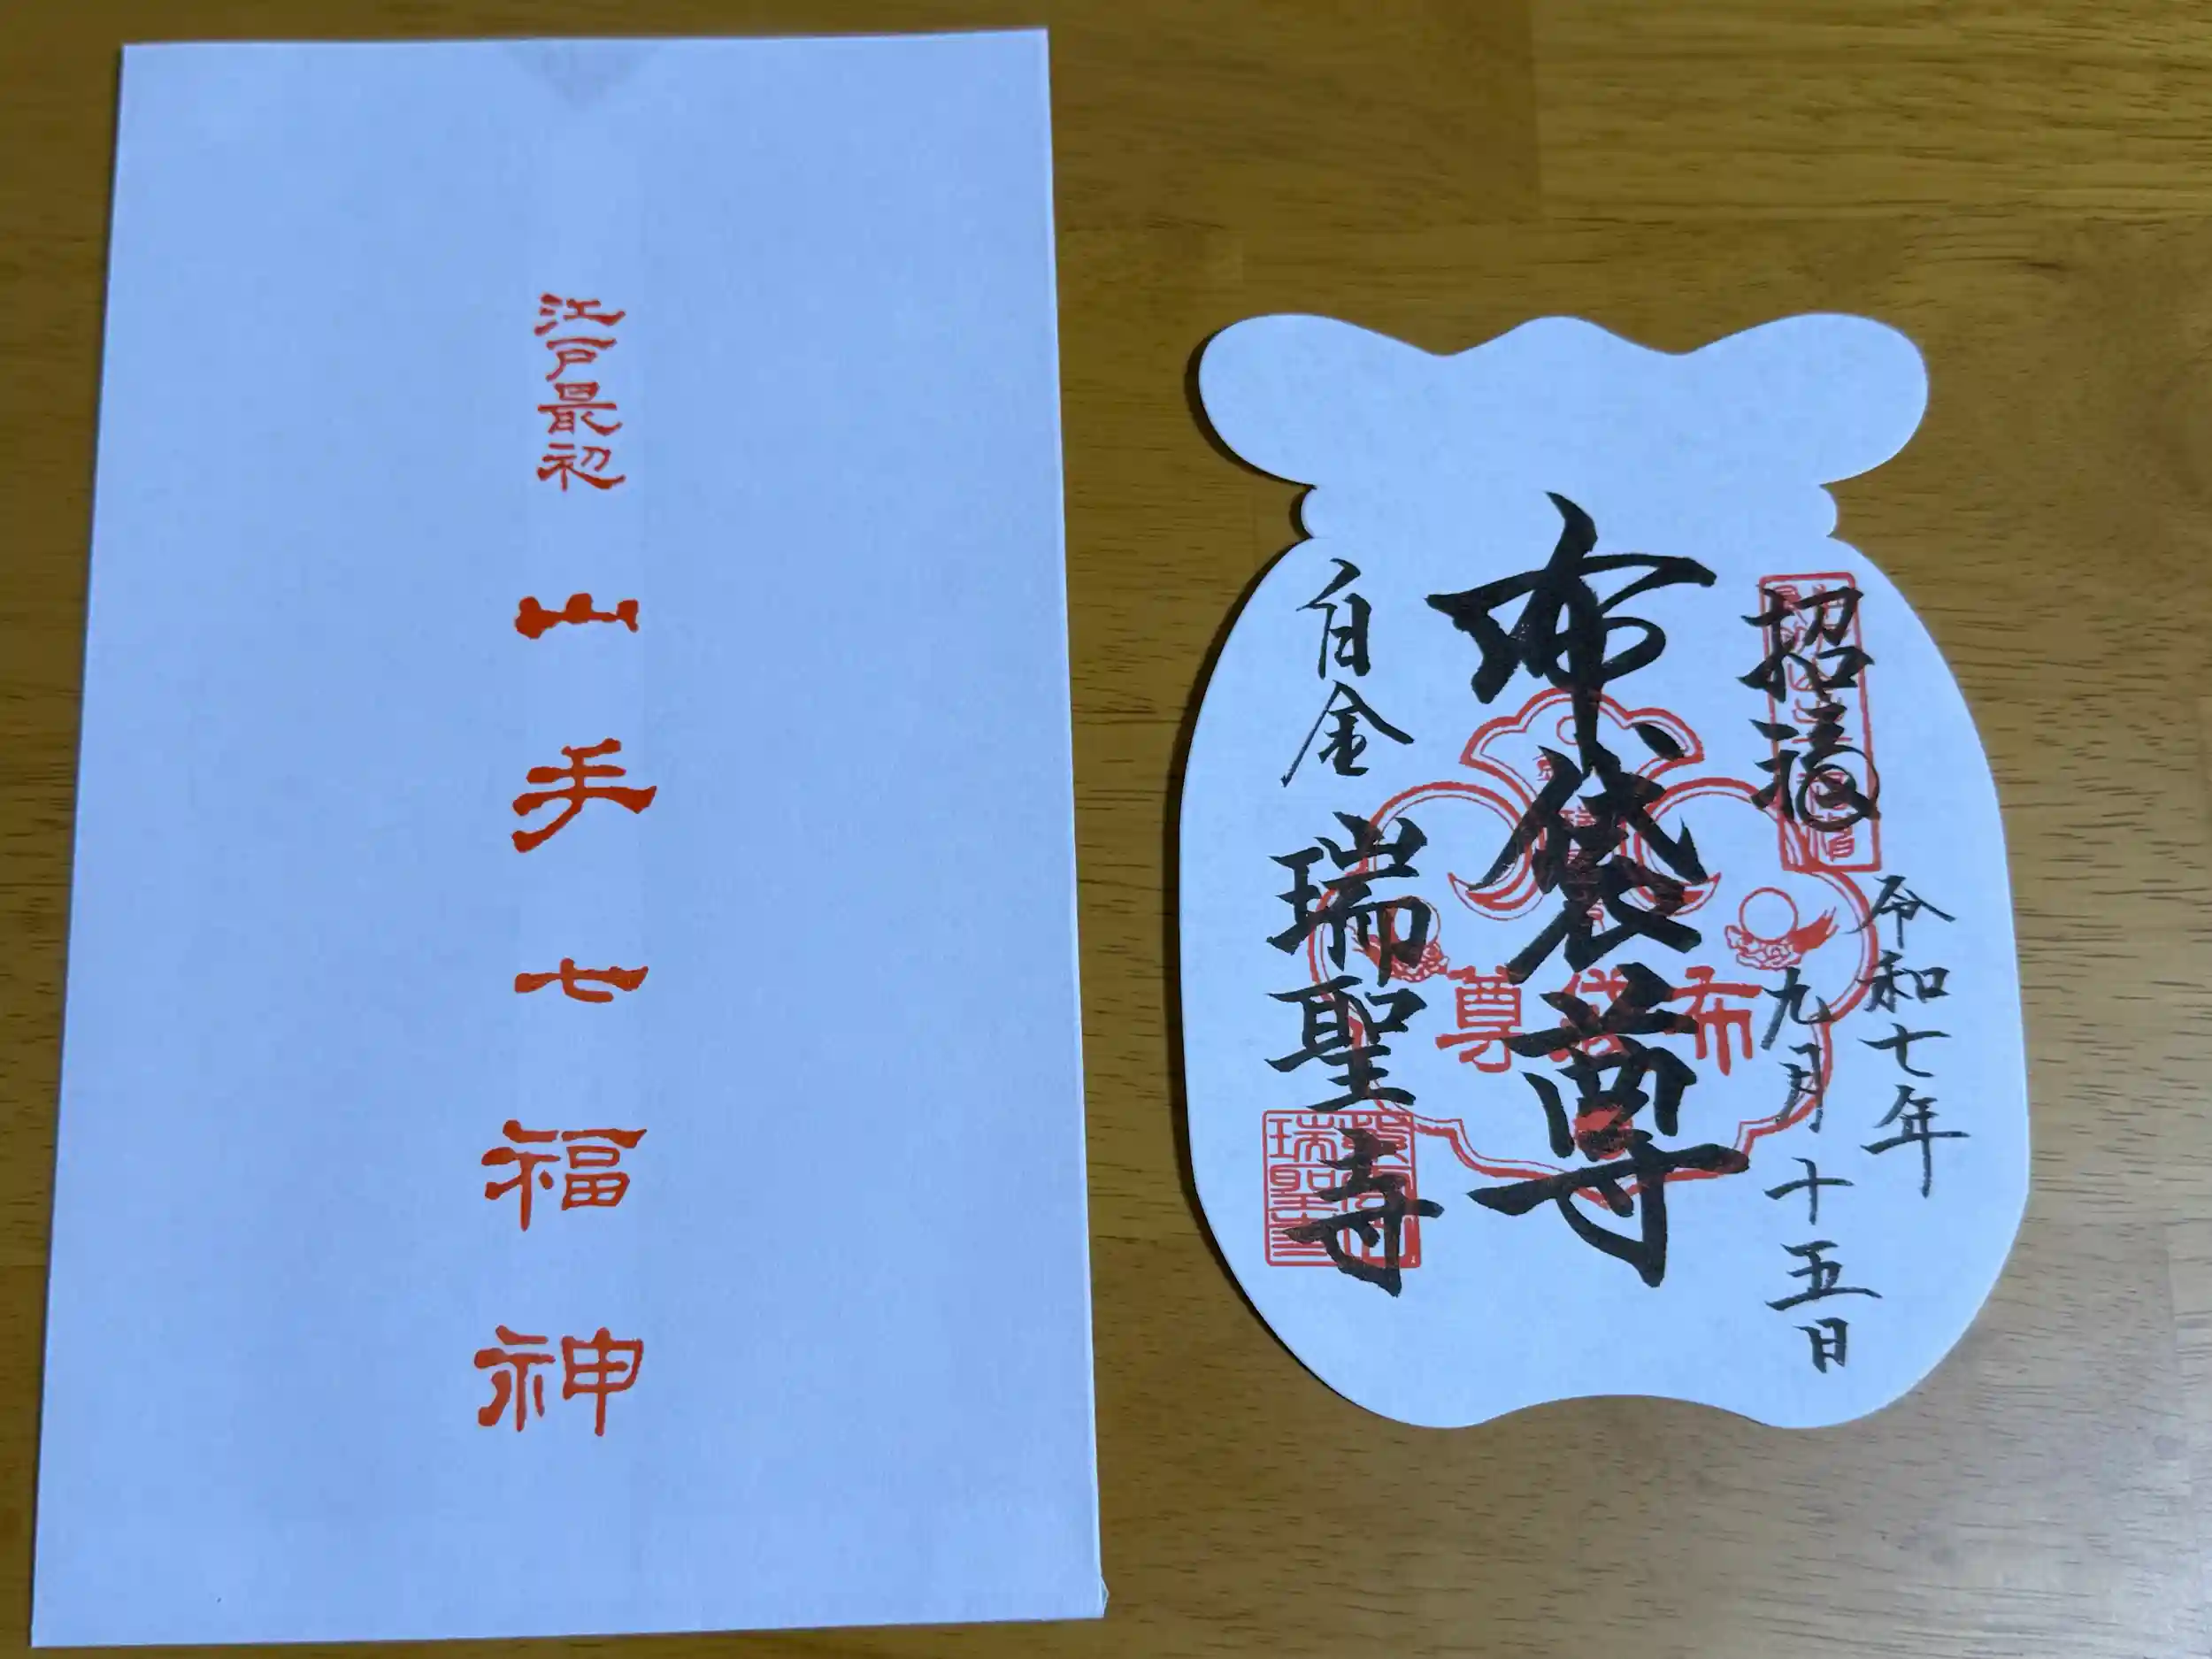 江戸最初
山手七福神
招福
令和七年
九月十五日
布袋尊
布袋尊
白金
瑞聖寺
瑞聖寺